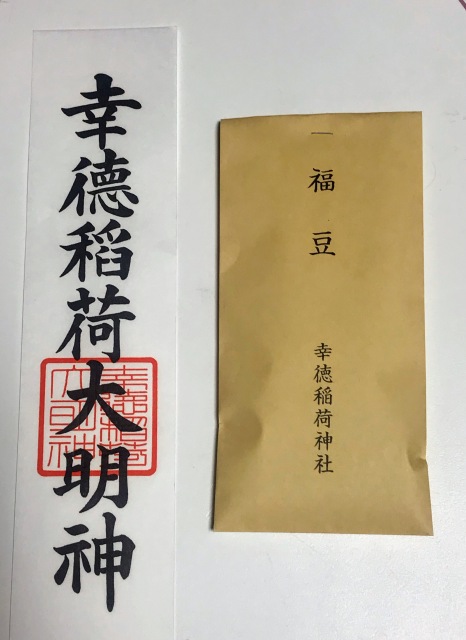 幸徳稲荷大明神
一
福豆
幸徳稲荷神社